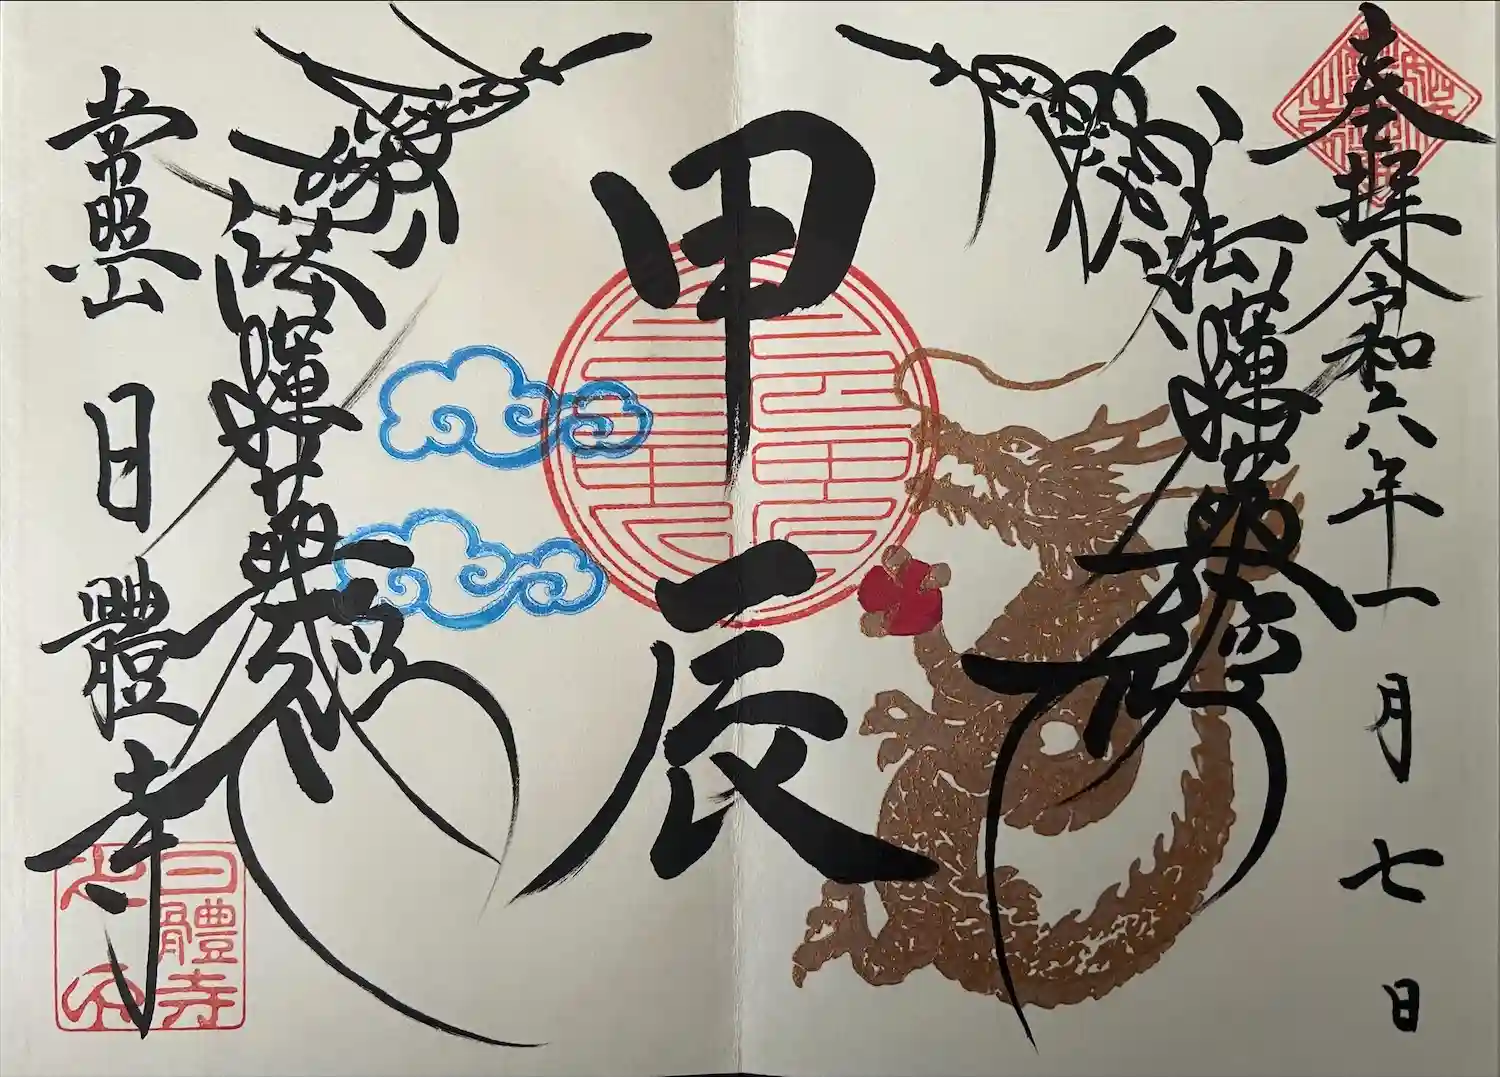 奉拝 令和六年一月七日
南無妙法蓮華経
甲辰
南無妙法蓮華経
常照山 日體寺
日體寺